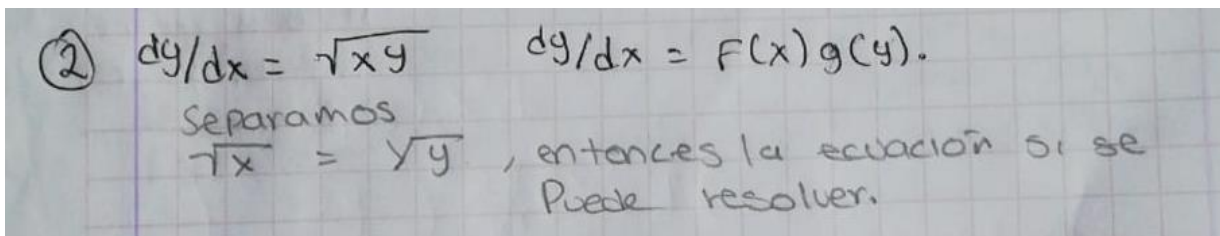 ② dy/dx = √xy dy/dx = F(x)g(y).
Separamos
√x = √y , entonces la ecuación si se
Puede resolver.